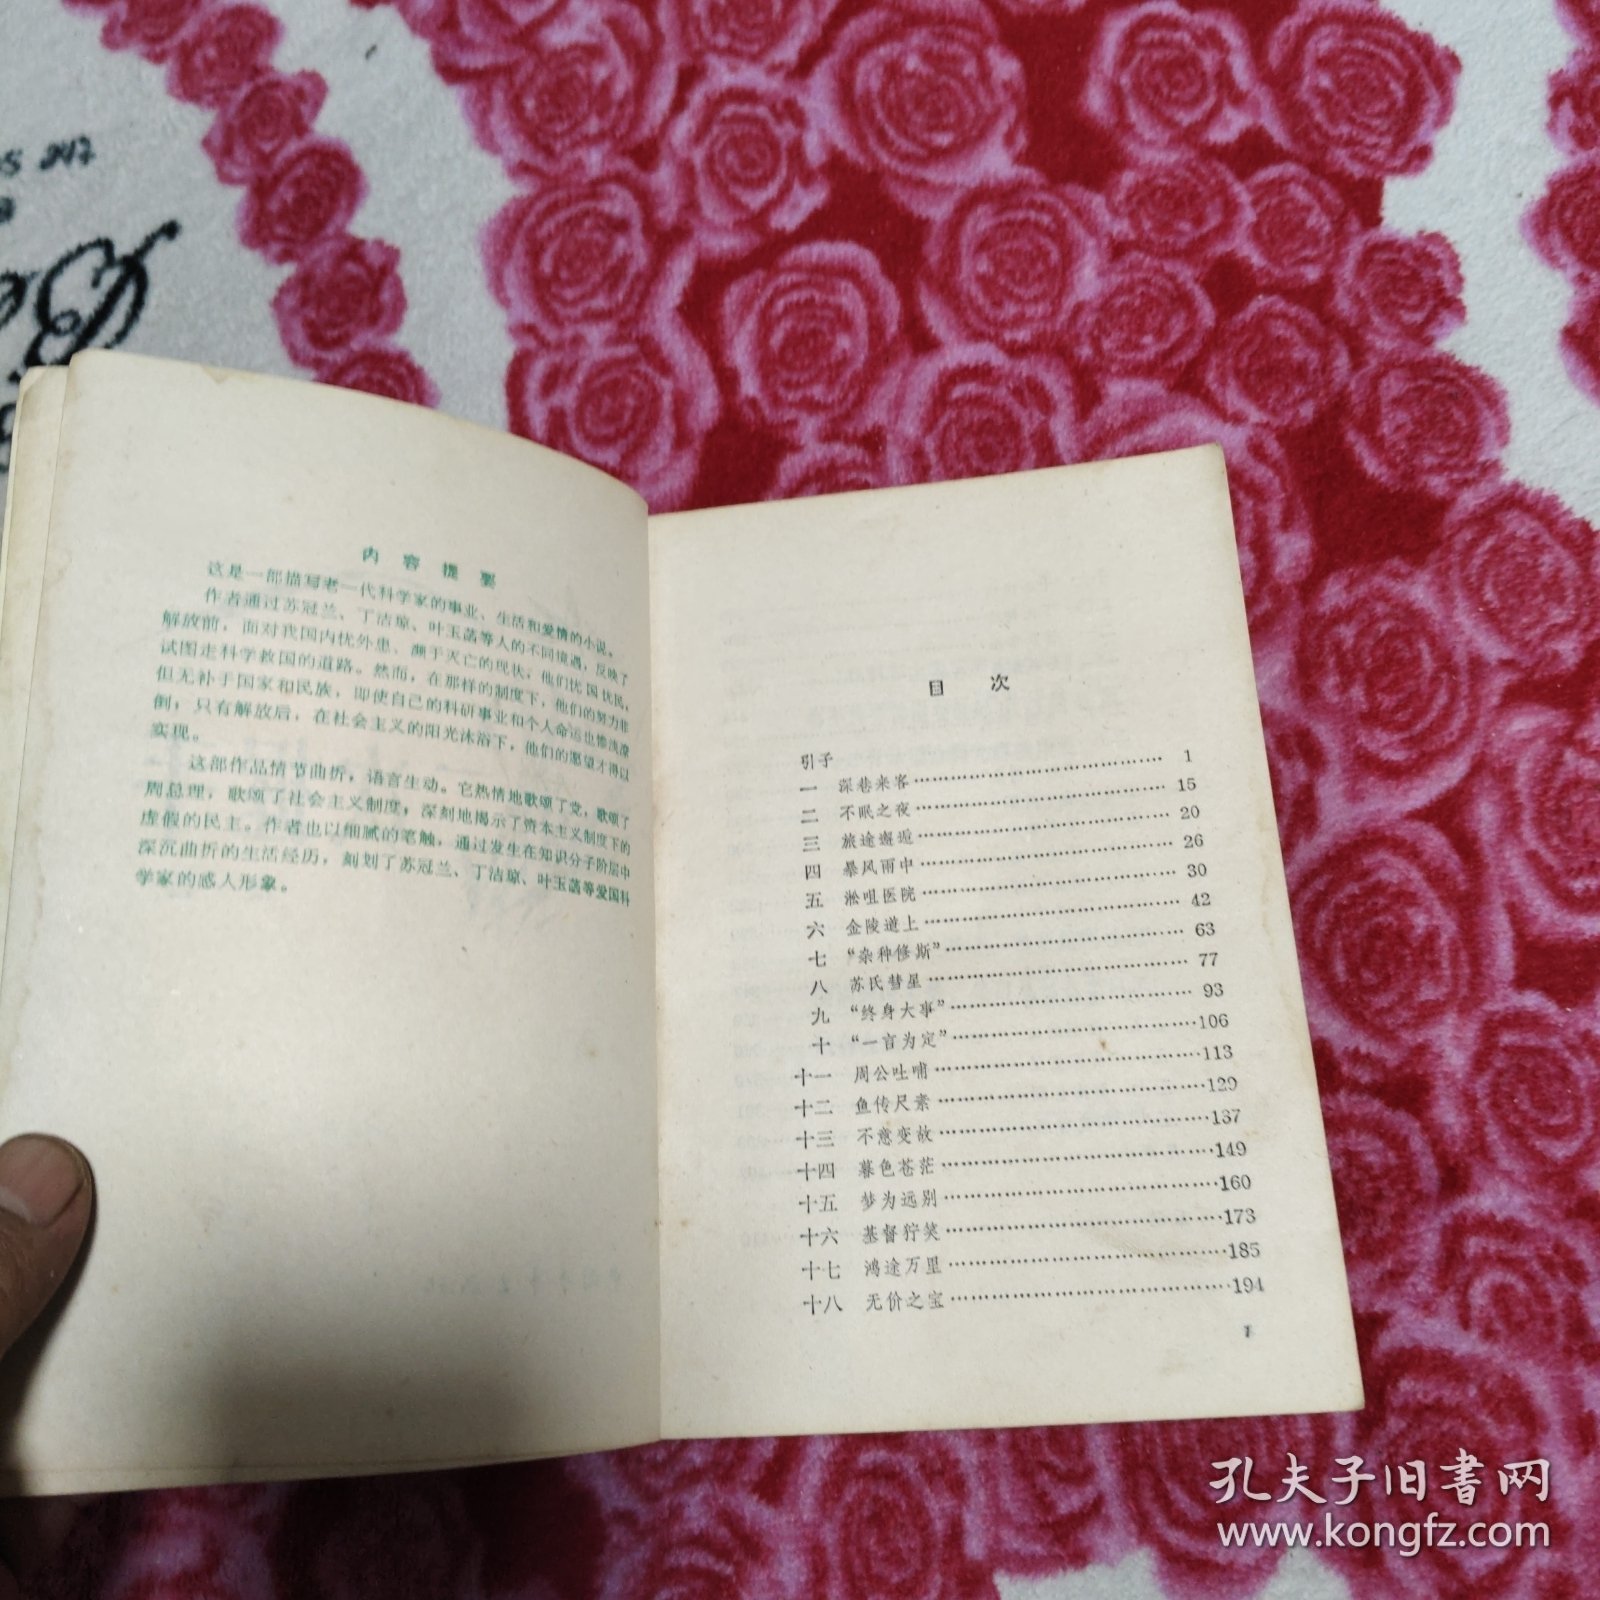 内容提要
这是一部描写老一代科学家的事业、生活和爱情的小说。
作者通过苏冠兰、丁洁琼、叶玉菡等人的不同境遇，反映了
解放前，面对我国内忧外患、濒于灭亡的现状，他们忧国忧民，
试图走科学救国的道路。然而，在那样的制度下，他们的努力非
但无补于国家和民族，即使自己的科研事业和个人命运也惨浅潦
倒；只有解放后，在社会主义的阳光沐浴下，他们的愿望才得以
实现。
这部作品情节曲折，语言生动。它热情地歌颂了党，歌颂了
周总理，歌颂了社会主义制度；深刻地揭示了资本主义制度下的
虚假的民主。作者也以细腻的笔触，通过发生在知识分子阶层中
深沉曲折的生活经历，刻划了苏冠兰、丁洁琼、叶玉菡等爱国科
学家的感人形象。
目次
引子
一 深巷来客 1
二 不眠之夜 15
三 旅途邂逅 20
四 暴风雨中 26
五 淞咀医院 30
六 金陵道上 42
七 “杂种修斯” 63
八 苏氏彗星 77
九 “终身大事” 93
十 “一言为定” 106
十一 周公吐哺 113
十二 鱼传尺素 129
十三 不意变故 137
十四 暮色苍茫 149
十五 梦为远别 160
十六 基督狞笑 173
十七 鸿途万里 185
十八 无价之宝 194
1
孔夫子旧书网
www.kongfz.com